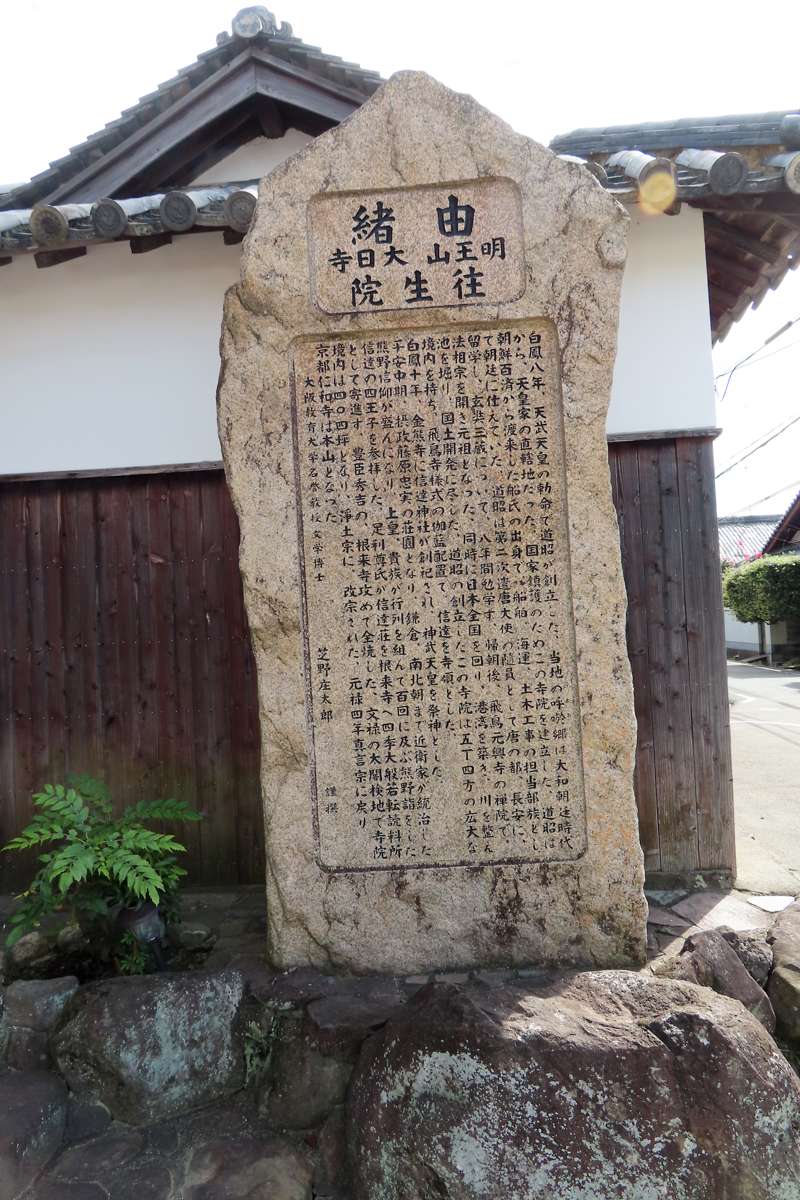 由緒
明王山 大日寺
往生院
白鳳八年、天武天皇の勅命で道昭が創立した。当地の呼於郷は大和朝廷時代
から、天皇家の直轄地だった。国家鎮護のためこの寺院を建立した。道昭は
朝鮮百済から渡来した船氏の出身で、船舶、海運、土木工事の担当部族とし
て朝廷に仕えていた。道昭は第二次遣唐大使の随員として唐の都、長安に、
留学し、玄奘三蔵について、八年間勉学す。帰朝後、飛鳥元興寺の禅院で、
法相宗を開き元祖となった。同時に日本全国を回り、港湾を築き、川を整ん
池を掘り、国土開発に尽した。道昭の創立したこの寺院は五丁四方の広大な
境内を持ち、飛鳥寺様式の伽藍配置で、信達を寺領とした。
白鳳十年、金熊寺に信達神社が創祀され、神武天皇を祭神とした。
平安中期、摂政藤原忠実の荘園となり、鎌倉、南北朝まで近衛家が統治した
熊野信仰が盛んになり、上皇、貴族が行列を組んで百回に及ぶ熊野詣をした
信達の四王子を参拝した。足利尊氏が信達荘を根来寺へ四季大般若転読料所
として寄進す。豊臣秀吉の、根来寺攻めで全焼した。文禄の太閤検地で寺院
境内は四〇四坪となり、浄土宗に、改宗された。元禄四年真言宗に戻り
京都仁和寺は本山となった。
大阪教育大学名誉教授 文学博士 芝野庄太郎 謹撰